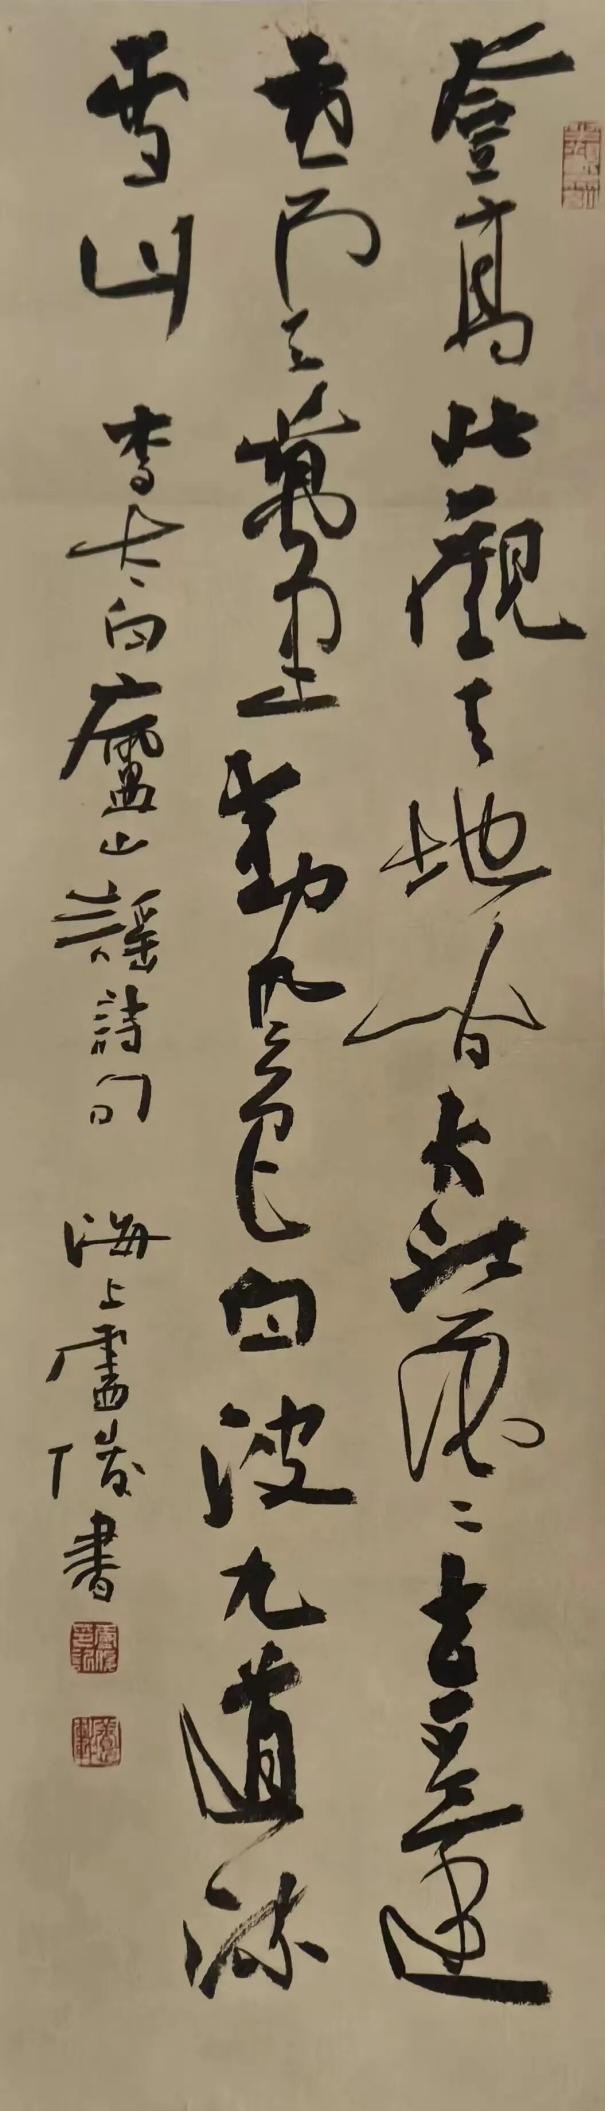 登高壯觀天地間大江茫〻去不還
黃雲萬里動風色白波九道流
雪山 李太白廬山謠詩句 海上盧俊書